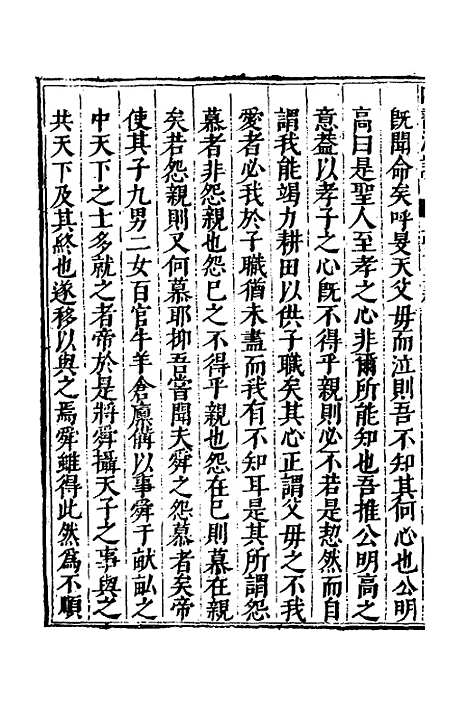 既聞命矣呼旻天父毋而泣則吾不知其何心也公明
高曰是聖人至孝之心非爾所能知也吾推公明高之
意葢以孝子之心旣不得乎親則必不若是恝然而自
謂我能竭力耕田以供子職矣其心正謂父毋之不我
愛者必我於子職猶未盡而我有不知耳是其所謂怨
慕者非怨親也怨巳之不得乎親也怨在巳則慕在親
矣若怨親則又何慕耶抑吾嘗聞夫舜之怨慕者矣帝
使其子九男二女百官牛羊倉廩備以事舜于畎畆之
中天下之士多就之者帝於是將舜攝天子之事與之
共天下及其終也遂移以與之焉舜雖得此然為不順